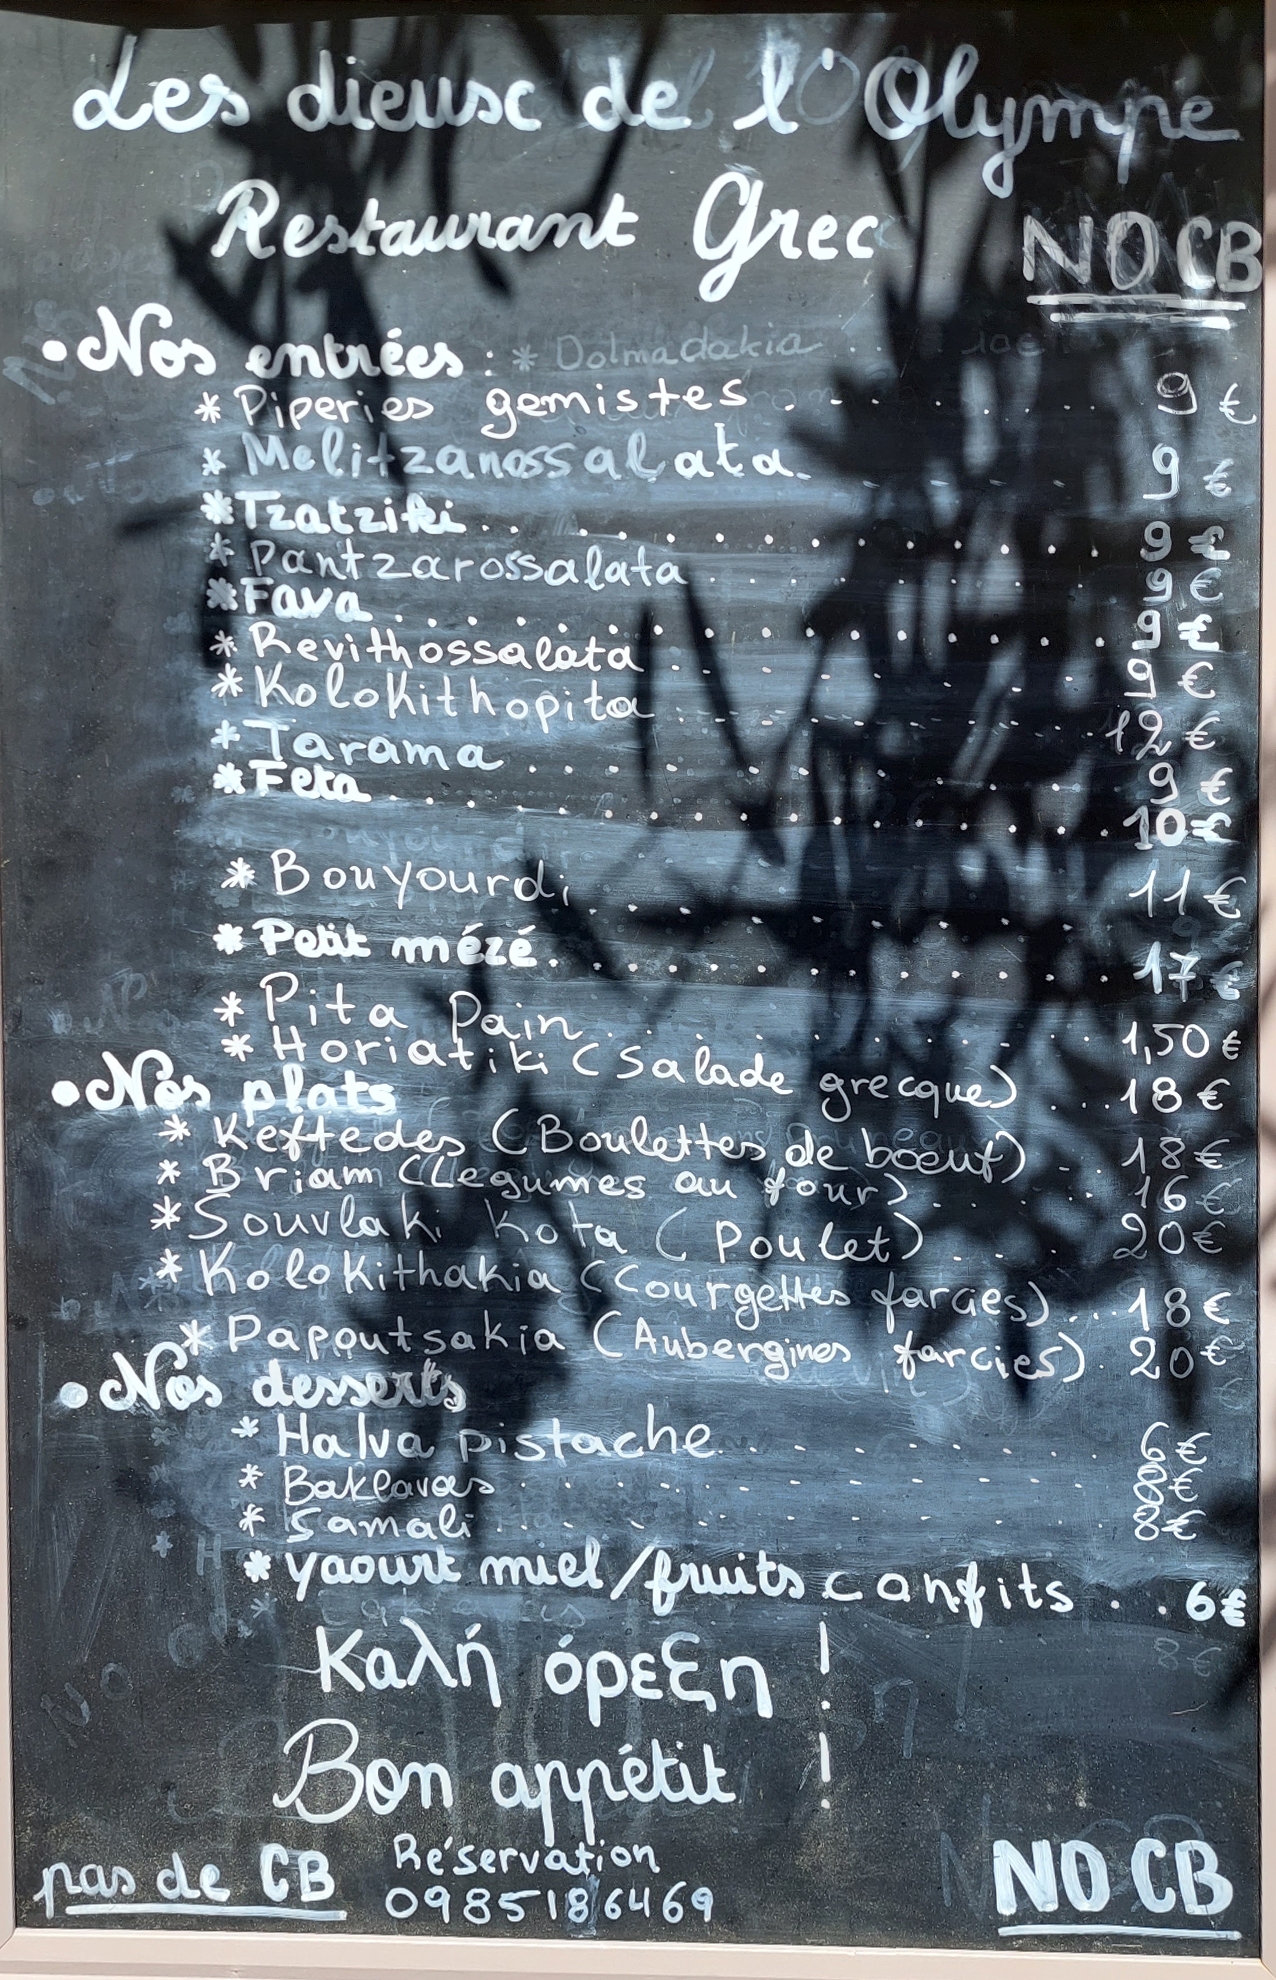 Les dieux de l'Olympe
Restaurant Grec
NO CB
• Nos entrées : * Dolmadakia . . 10€
* Piperies gemistes . . . . . . . 9 €
* Melitzanossalata . . . . . 9 €
* Tzatziki . . . . . . . . . . 9 €
* Pantzarossalata . . . . . . 9 €
* Fava . . . . . . . . . . 9 €
* Revithossalata . . . . . . 9 €
* Kolokithopita . . . . . . 12 €
* Tarama . . . . . . . . 9 €
* Feta . . . . . . . . . . 10 €
* Bouyourdi . . . . . . . . 11 €
* Petit mézé . . . . . . . . 17 €
* Pita Pain . . . . . . . . 1,50 €
* Horiatiki (Salade grecque) . . . 18 €
• Nos plats
* Keftedes (Boulettes de bœuf) . . 18 €
* Briam (Legumes au four) . . . . 16 €
* Souvlaki Kota (Poulet) . . . . 20 €
* Kolokithakia (Courgettes farcies) . . . 18 €
* Papoutsakia (Aubergines farcies) . 20 €
• Nos desserts
* Halva pistache . . . . . . . 6 €
* Baklavas . . . . . . . . 8 €
* Samali . . . . . . . . 8 €
* yaourt miel/fruits confits . . 6 €
Καλή όρεξη !
Bon appétit !
pas de CB
Réservation
0985186469
NO CB